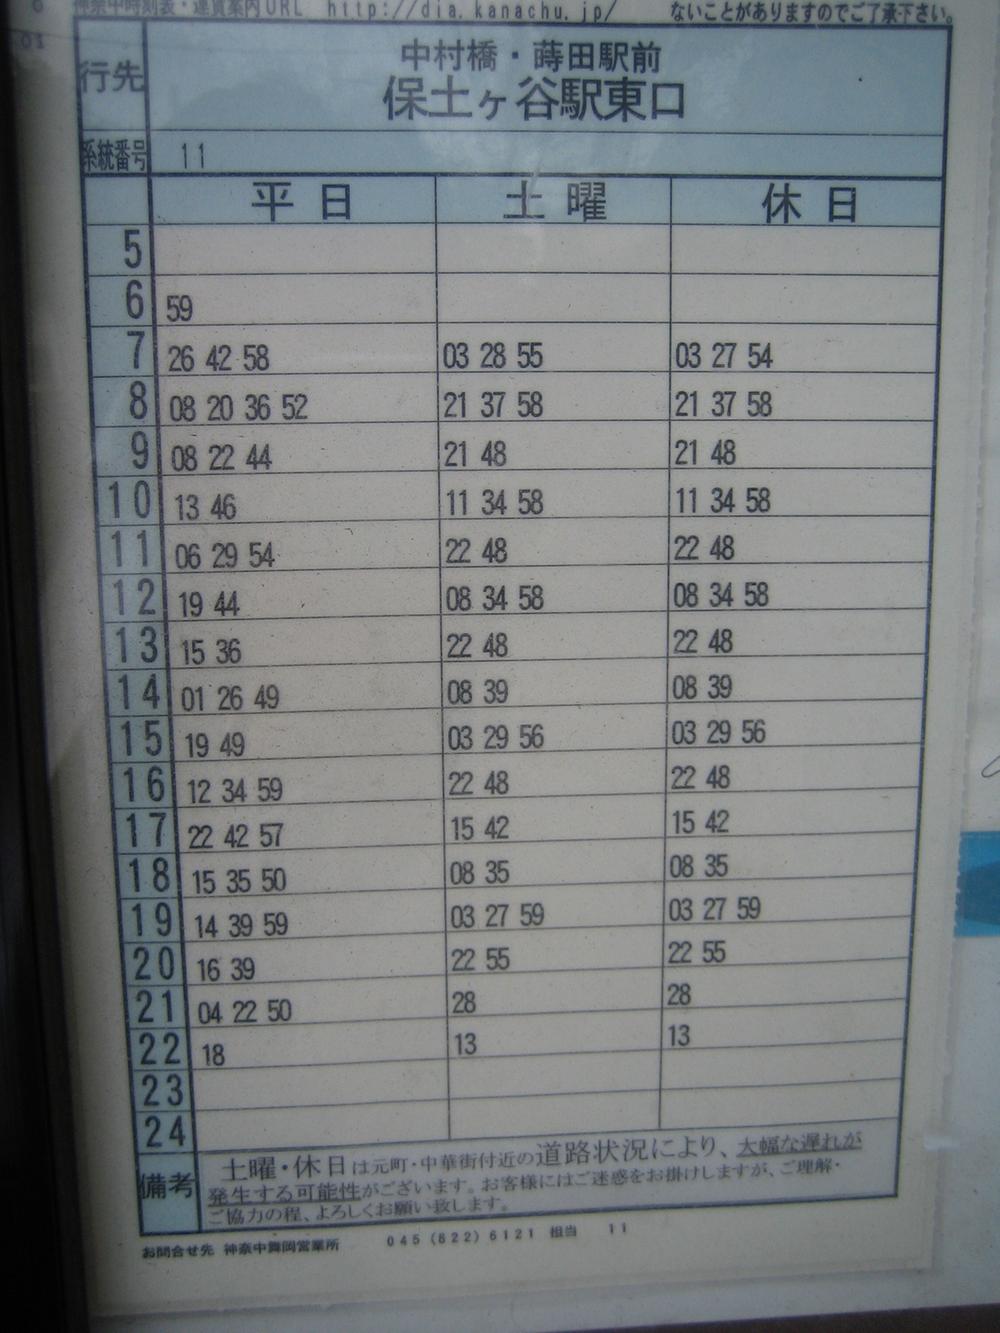 神奈中時刻表・運賃案内URL http://dia.kanachu.jp/ ないことがありますのでご了承下さい。
行先 中村橋・蒔田駅前
保土ヶ谷駅東口
系統番号 11
平日 土曜 休日
5
6 59
7 26 42 58 03 28 55 03 27 54
8 08 20 36 52 21 37 58 21 37 58
9 08 22 44 21 48 21 48
10 13 46 11 34 58 11 34 58
11 06 29 54 22 48 22 48
12 19 44 08 34 58 08 34 58
13 15 36 22 48 22 48
14 01 26 49 08 39 08 39
15 19 49 03 29 56 03 29 56
16 12 34 59 22 48 22 48
17 22 42 57 15 42 15 42
18 15 35 50 08 35 08 35
19 14 39 59 03 27 59 03 27 59
20 16 39 22 55 22 55
21 04 22 50 28 28
22 18 13 13
23
24
備考 土曜・休日は元町・中華街付近の道路状況により、大幅な遅れが
発生する可能性がございます。お客様にはご迷惑をお掛けしますが、ご理解・
ご協力の程、よろしくお願い致します。
お問合せ先 神奈中舞岡営業所 045(822)6121 担当 11